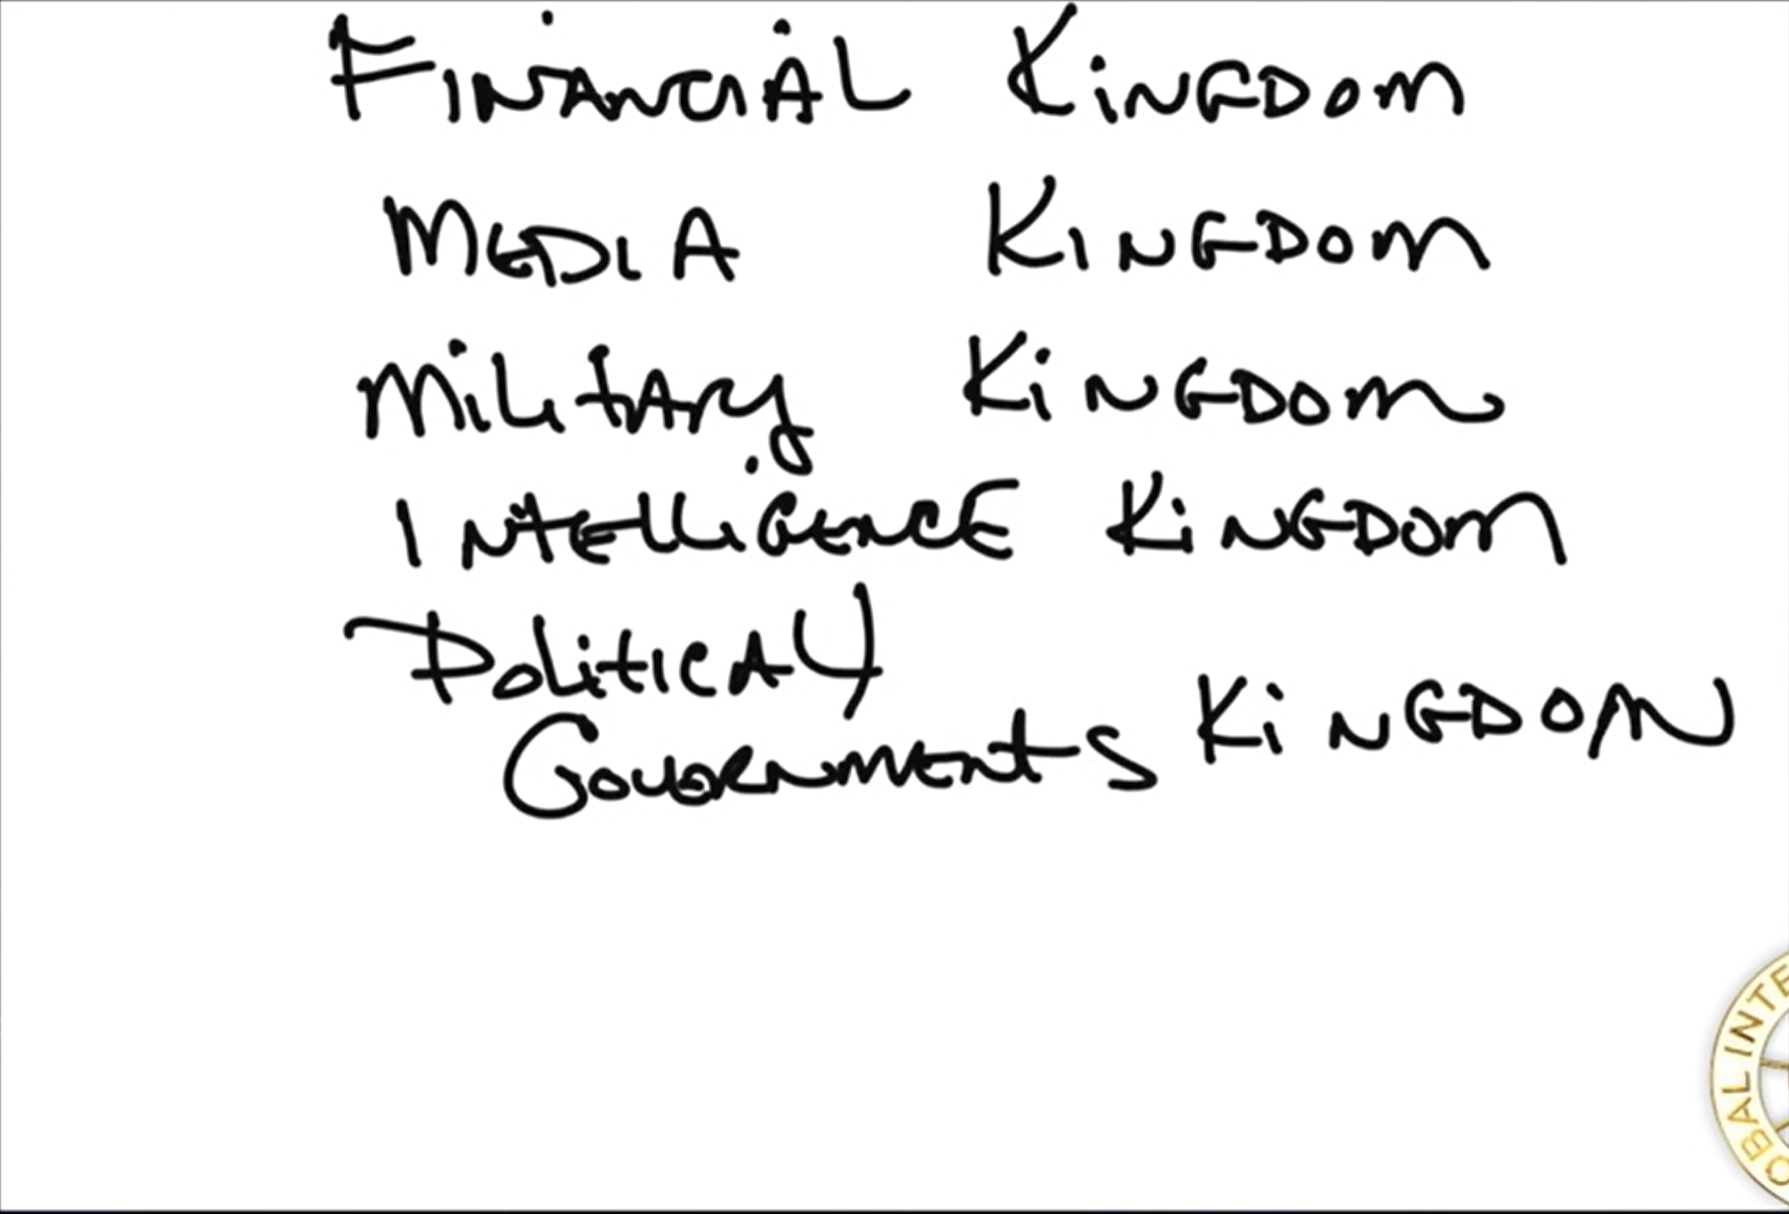 Financial Kingdom
Media Kingdom
Military Kingdom
Intelligence Kingdom
Political/
Governments Kingdom
OBAL INTE